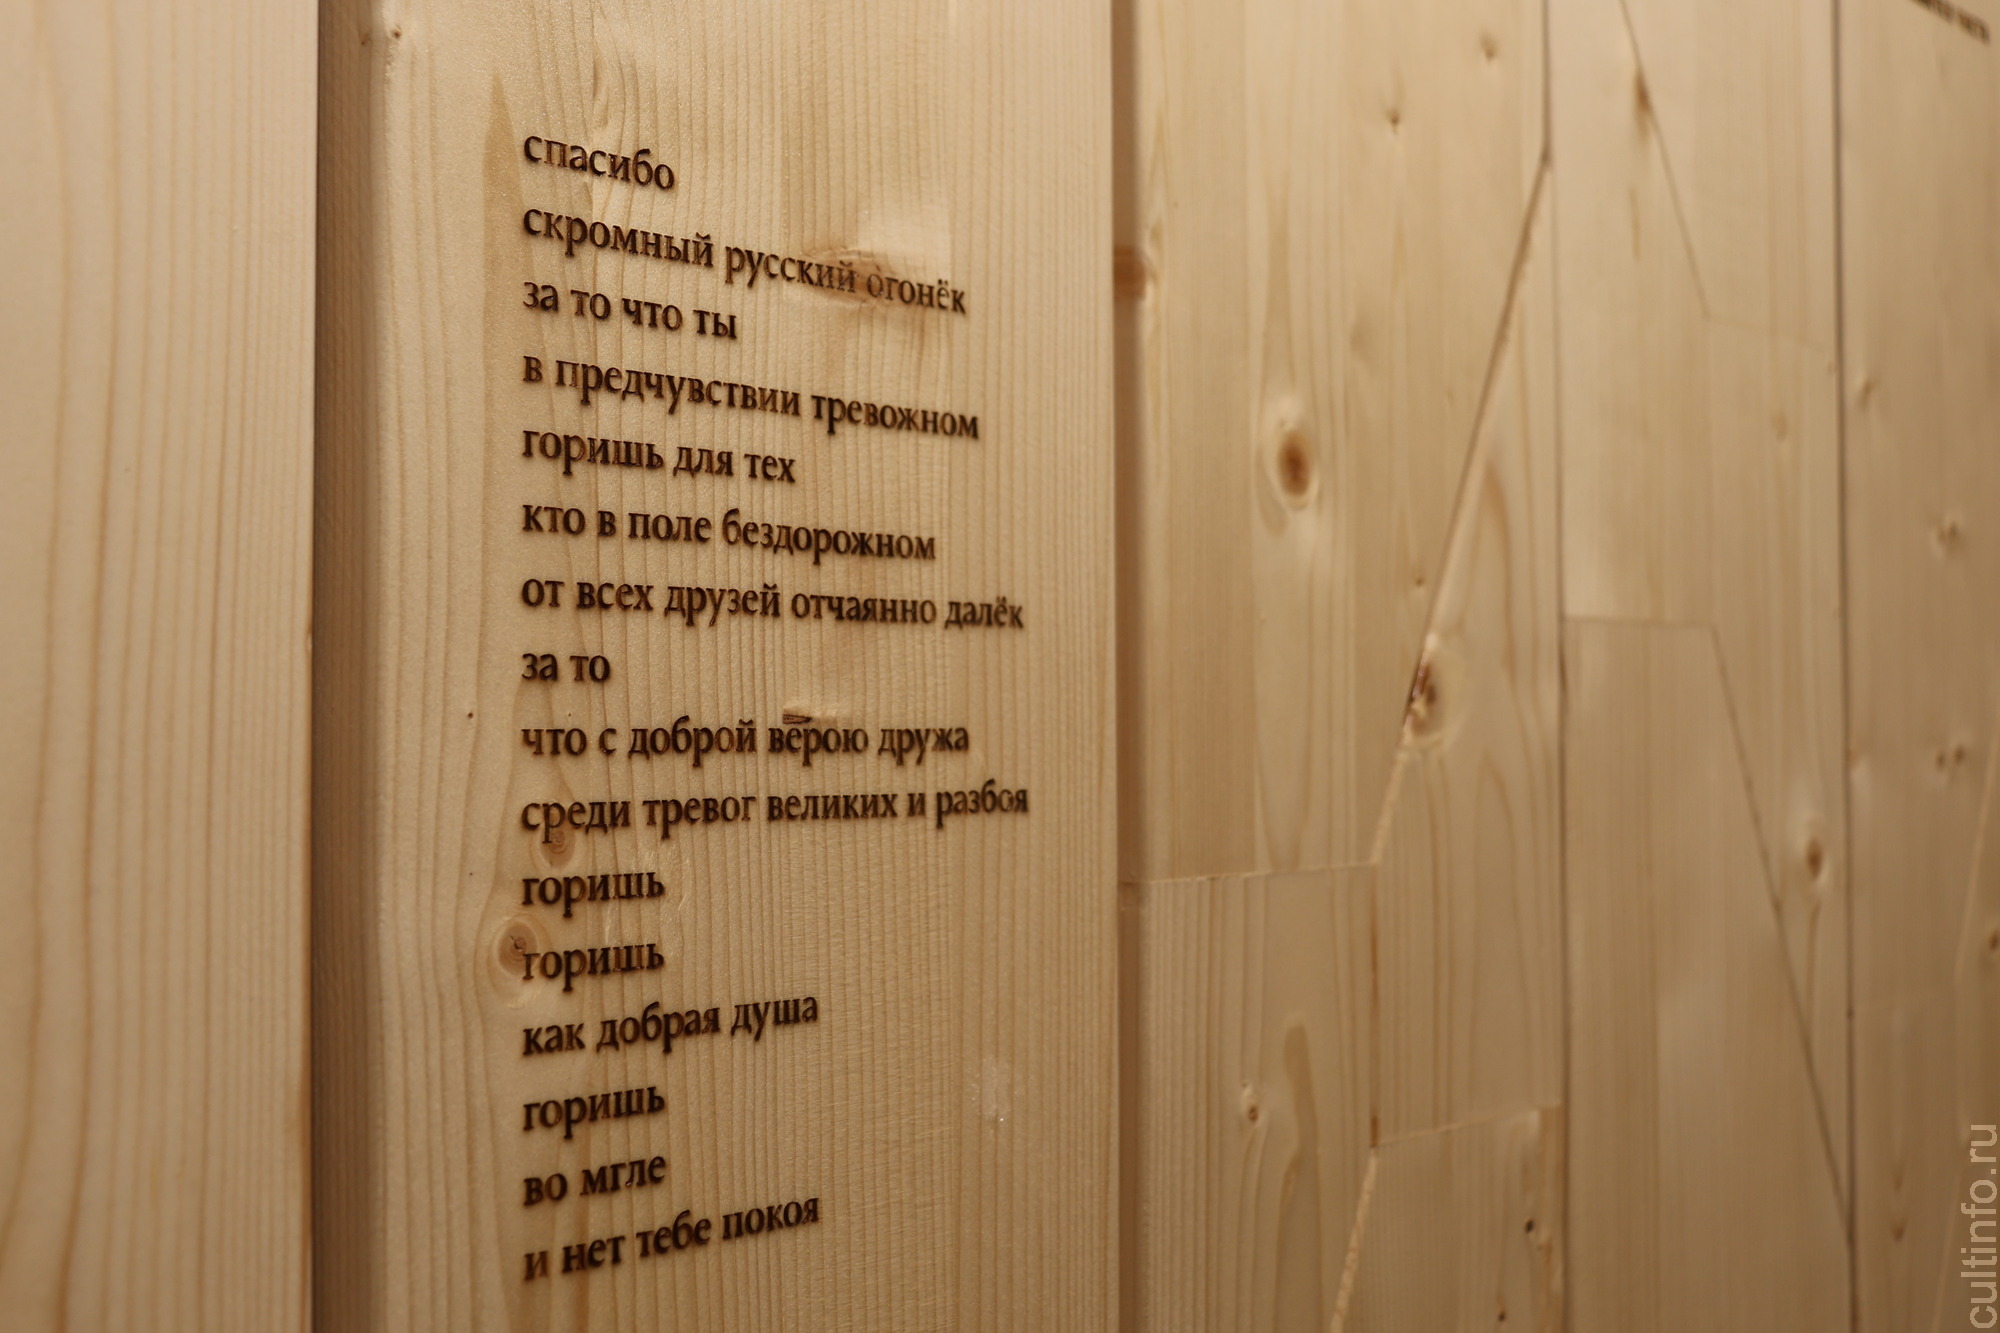 спасибо
скромный русский огонёк
за то что ты
в предчувствии тревожном
горишь для тех
кто в поле бездорожном
от всех друзей отчаянно далёк
за то
что с доброй верою дружа
среди тревог великих и разбоя
горишь
горишь
как добрая душа
горишь
во мгле
и нет тебе покоя
cultinfo.ru